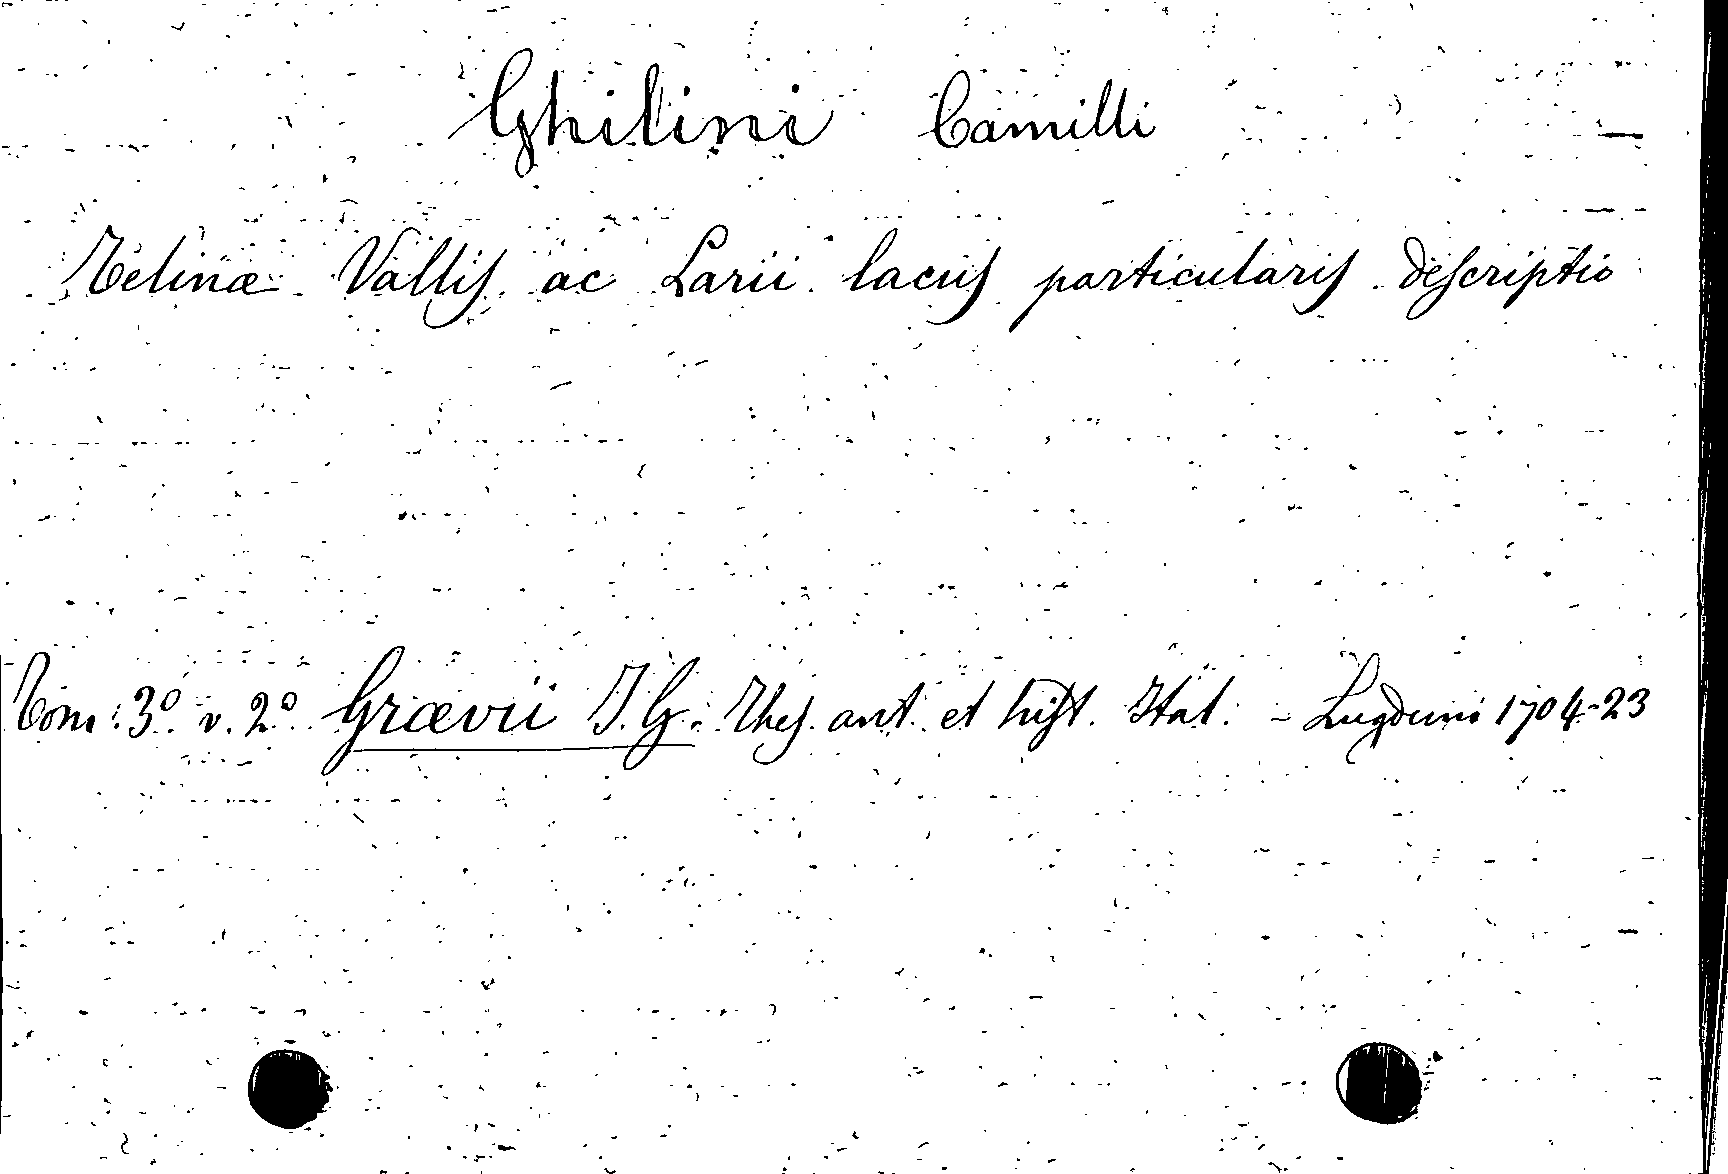 Ghilini Camilli
Telinæ Vallis ac Larii lacus particularis descriptio
Tom: 3º v. 2º Grævii J. G. Thes. ant. et hist. Ital. - Lugduni 1704-23